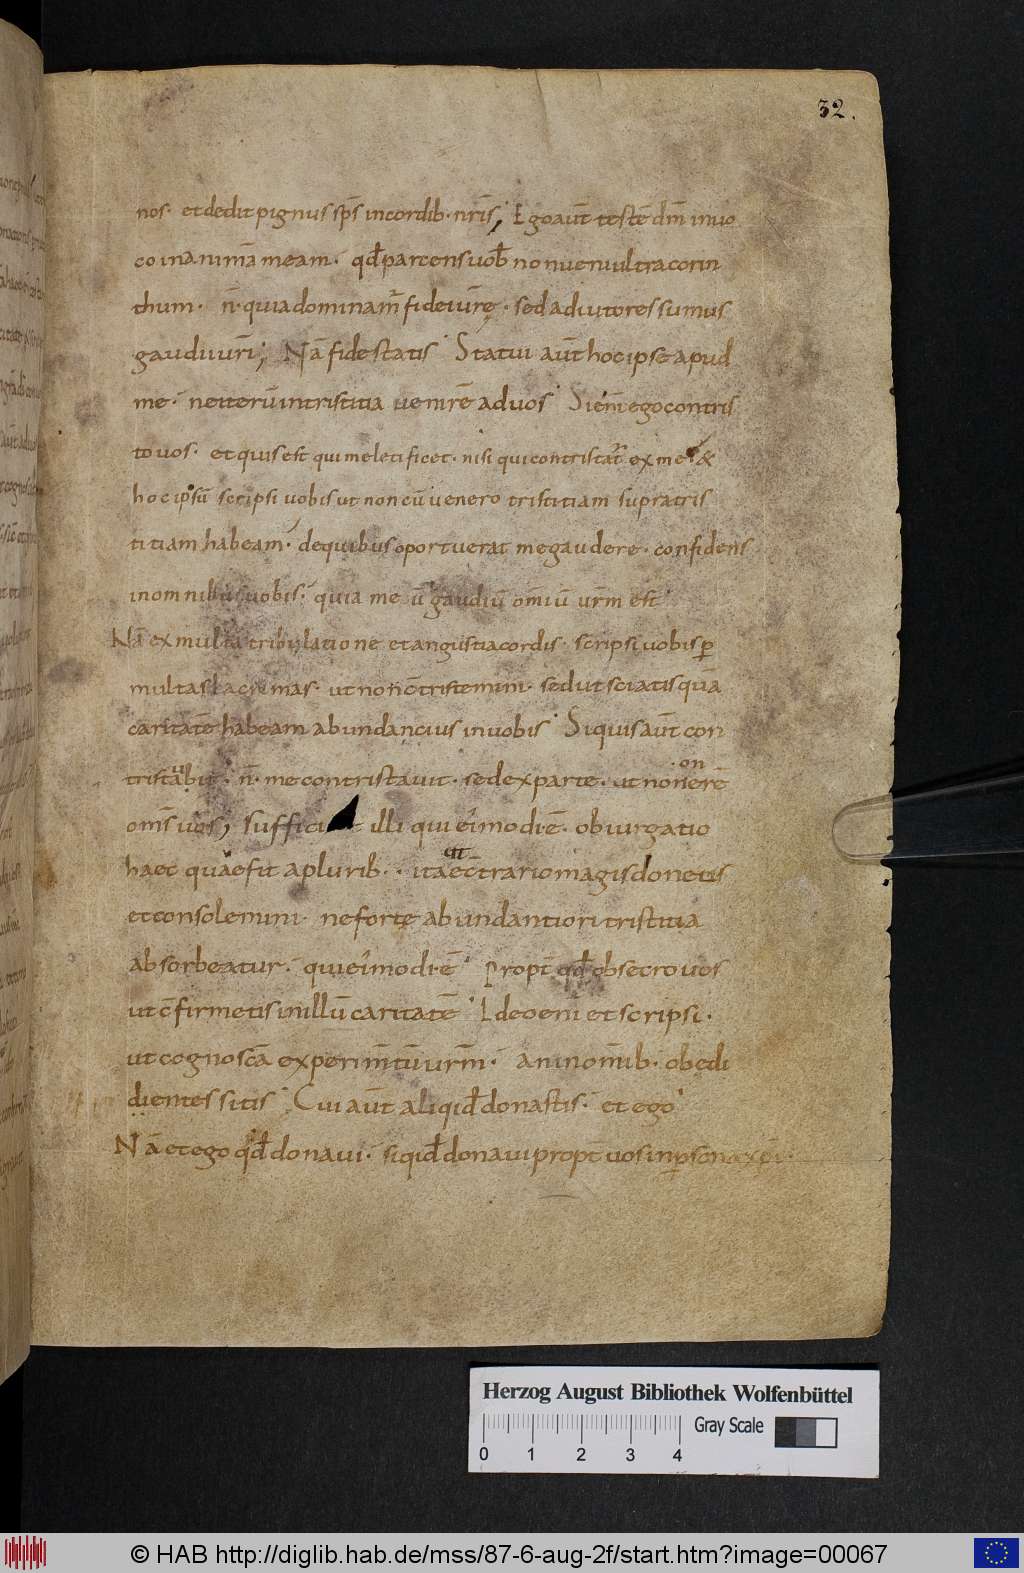 32.
nos. et dedit pignus sp̄s in cordib. nr̄is; Ego aūt testē dm̄ inuo
co in animā meam. qđ parcens uob̄ non ueni ultra corin
thum. n̄. quia dominam̄ fidei ur̄ę. sed adiutores sumus
gaudii ur̄i; Nā fide statis Statui aūt hoc ipse apud
me. ne iterū in tristitia uenirē ad uos Si enī ego contris
to uos. et quis est qui me letificet. nisi qui contristat̄ ex me. &
hoc ipsū scripsi uobis ut non cū uenero tristitiam supra tris
titiam habeam. de quibus oportuerat me gaudere. confidens
in omnibus uobis. quia meū gaudiū om̄iū ur̄m est
Nā ex multa tribulatione et angustia cordis. scripsi uobis ꝑ
multas lacrimas. ut non c̄tristemini. sed ut sciatis quā
caritatē habeam abundancius in uobis Si quis aūt con
tristabit. n̄. me contristauit. sed ex parte. ut non erē
on
om̄s uos; sufficit illi qui ei'modi ē. obiurgatio
haec quae fit a plurib.. ita e c̄trario magis donetis
et consolemini. ne forte abundantiori tristitia
absorbeatur. qui ei'modi ē Propt̄ qđ obsecro uos
ut c̄firmetis in illū caritatē Ideo eni et scripsi.
ut cognoscā experim̄tū ur̄m. an in om̄ib. obędi
dientes sitis Cui aūt aliqid̄ donastis. et ego
Nā et ego qđ donaui. siqid̄ donaui propt̄ uos in ꝑsona xp̄i.
Herzog August Bibliothek Wolfenbüttel
Gray Scale
0 1 2 3 4
© HAB http://diglib.hab.de/mss/87-6-aug-2f/start.htm?image=00067